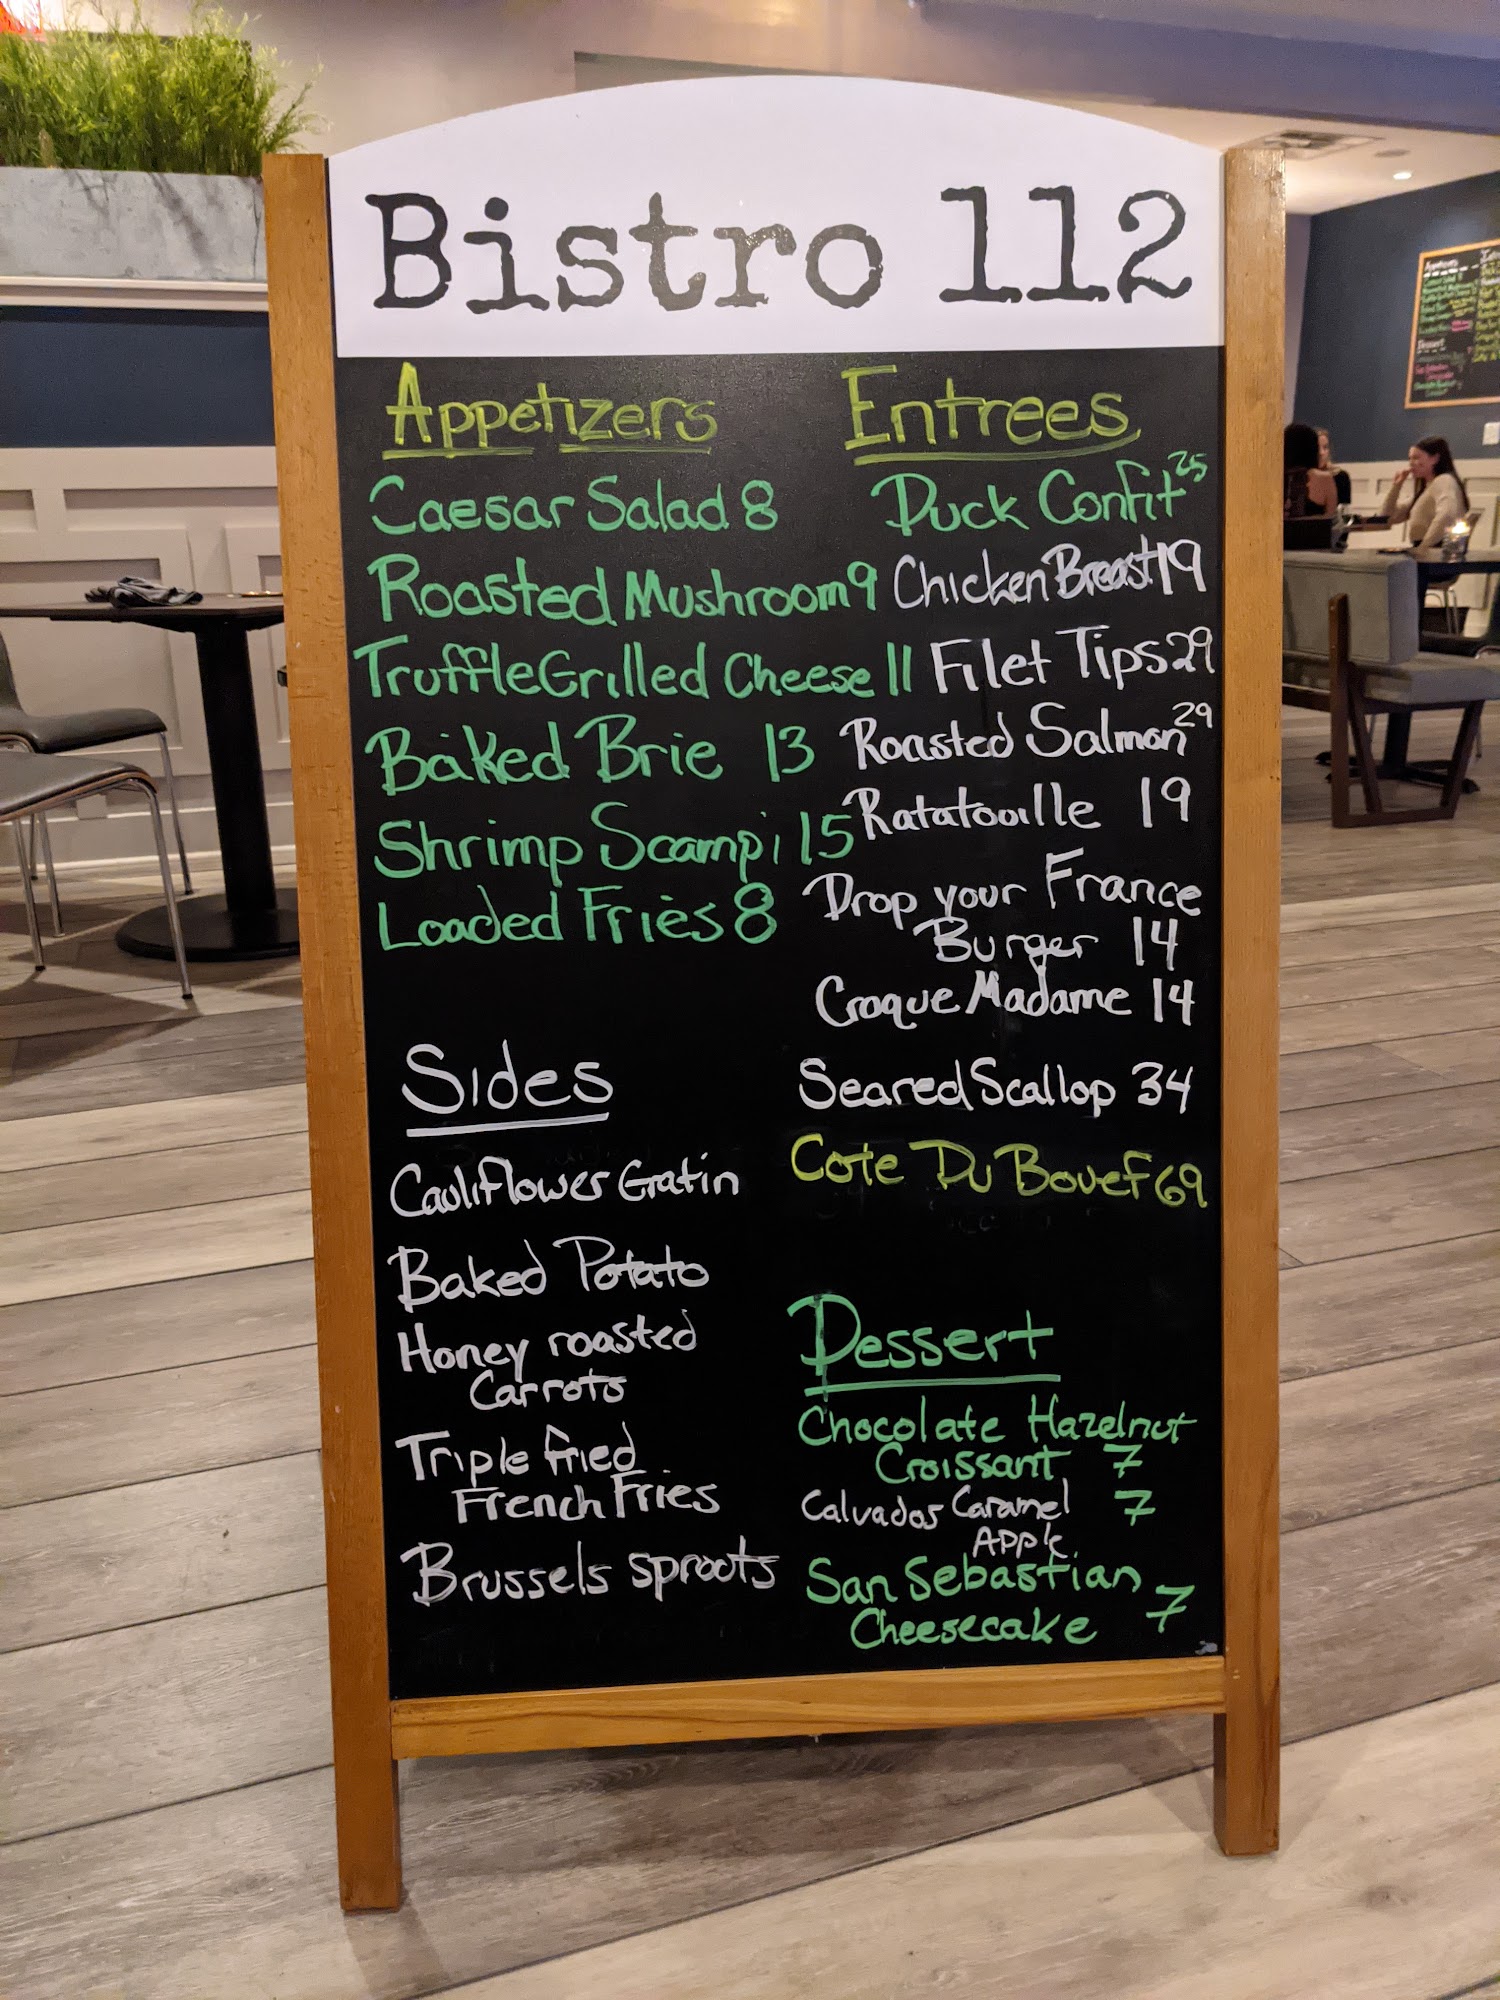 Bistro 112
Appetizers
Caesar Salad 8
Roasted Mushroom 9
Truffle Grilled Cheese 11
Baked Brie 13
Shrimp Scampi 15
Loaded Fries 8
Sides
Cauliflower Gratin
Baked Potato
Honey roasted
Carrots
Triple fried
French Fries
Brussels sprouts
Entrees
Duck Confit 25
Chicken Breast 19
Filet Tips 29
Roasted Salmon 29
Ratatouille 19
Drop your France
Burger 14
Croque Madame 14
Seared Scallop 34
Cote Du Bouef 69
Dessert
Chocolate Hazelnut
Croissant 7
Calvados Caramel 7
Apple
San Sebastian
Cheesecake 7
Appetizers
Dessert